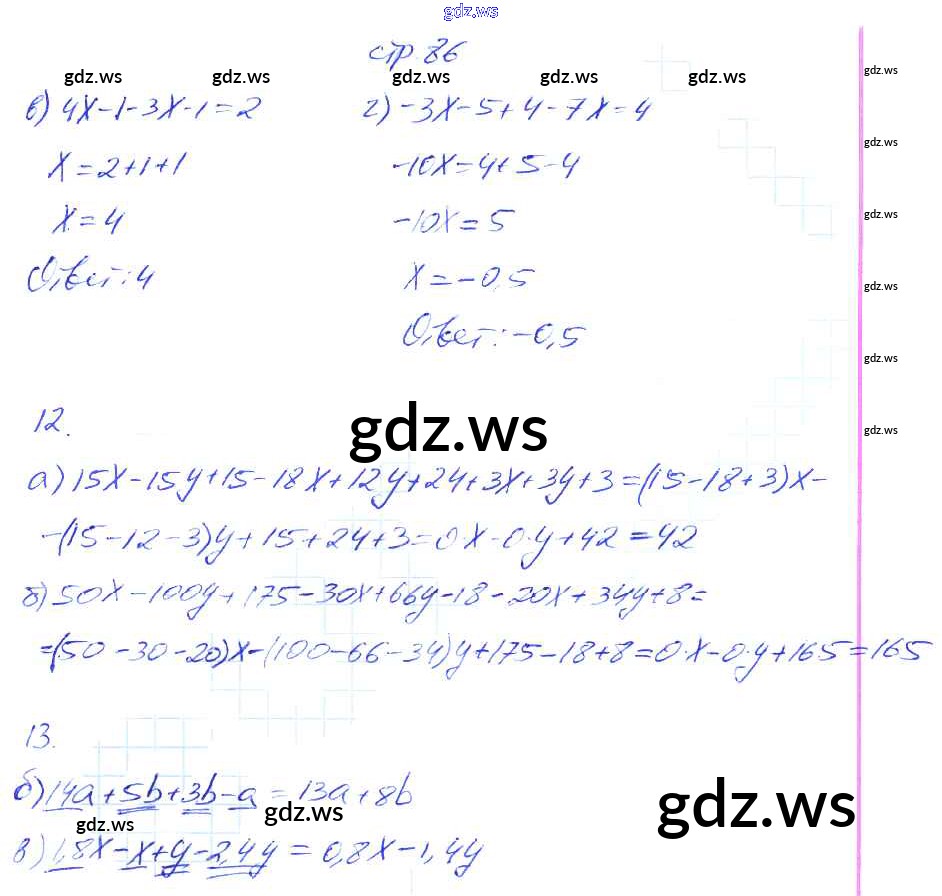 gdz.ws
стр. 86
gdz.ws gdz.ws gdz.ws gdz.ws gdz.ws
в) 4x-1-3x-1=2 г) -3x-5+4-7x=4
gdz.ws
x=2+1+1 -10x=4+5-4
gdz.ws
x=4 -10x=5
gdz.ws
Ответ: 4 x=-0,5
gdz.ws
Ответ: -0,5
gdz.ws
12. gdz.ws gdz.ws
а) 15x-15y+15-18x+12y+24+3x+3y+3=(15-18+3)x-
-(15-12-3)y+15+24+3=0·x-0·y+42=42
б) 50x-100y+175-30x+66y-18-20x+34y+8=
=(50-30-20)x-(100-66-34)y+175-18+8=0·x-0·y+165=165
13.
б) 14a+5b+3b-a=13a+8b
gdz.ws gdz.ws gdz.ws
в) 1,8x-x+y-2,4y=0,8x-1,4y